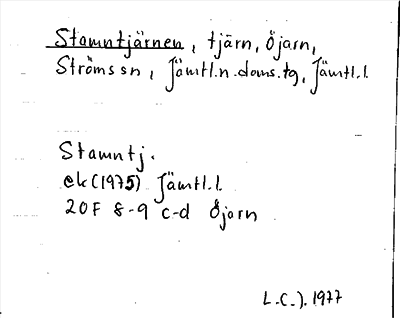 Stamntjärnen, tjärn, Öjarn,
Ströms sn, Jämtl.n.doms.tg, Jämtl.l.
Stamntj.
ek (1975) Jämtl.l.
20F 8-9 c-d Öjarn
L.C.J. 1977